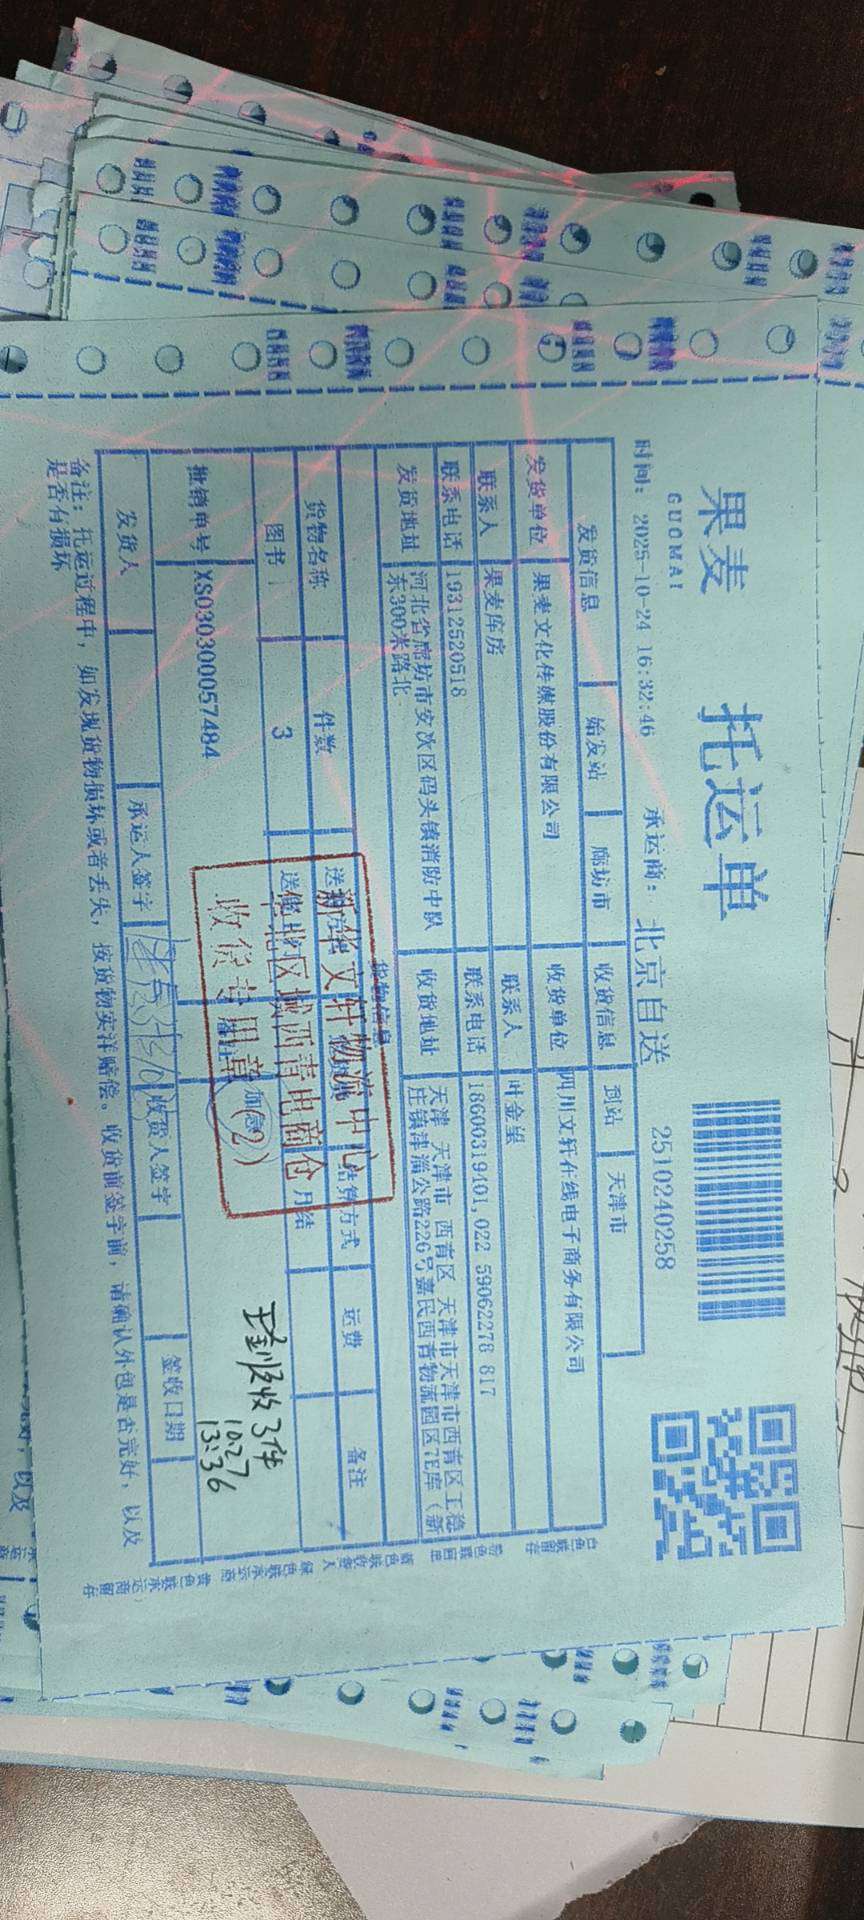 果麦 托运单
GUOMAI
时间: 2025-10-24 16:32:46 承运商: 北京自送 2510240258
发货信息 始发站 廊坊市 收货信息 到站 天津市
发货单位 果麦文化传媒股份有限公司 收货单位 四川文轩在线电子商务有限公司
联系人 果麦库房 联系人 叶金望
联系电话 19312520518 联系电话 18600319401,022 59062278 817
发货地址 河北省廊坊市安次区码头镇消防中队 收货地址 天津 天津市 西青区 天津市天津市西青区王蕊
东300米路北 庄镇津淄公路226号嘉民西青物流园区7E库（新
货物信息
货物名称 件数 结算方式 运费 备注
图书 3 月结
新华文轩物流中心
华北区域西青电商仓
收货专用章(2)
批销单号 XS030300057484 备注 加急
收3件
10.27
13:36
发货人 承运人签字 收货人签字 签收日期
备注: 托运过程中, 如发现货物损坏或者丢失, 按货物实洋赔偿。收货前签字前, 请确认外包是否完好, 以及
是否有损坏